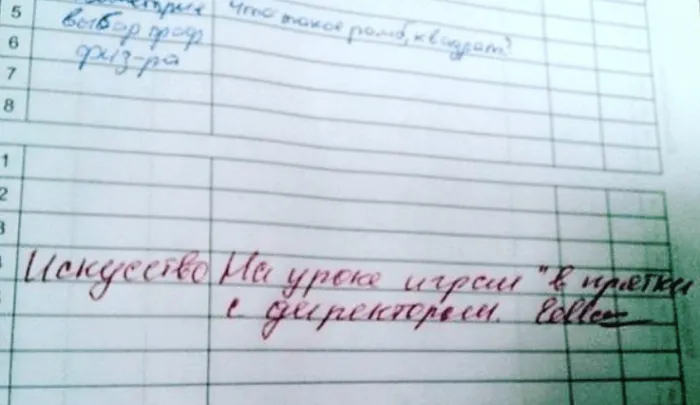 5 Что такое ромб, квадрат?
6 выбор проф
7 физ-ра
8
1
2
3
Искусство На уроке играл "в прятки
с директором.